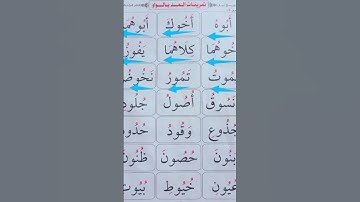 تدريبات المد بالواو
أَبُوهُ أَخُوكَ أَبُوهُمَا
أَخُوهُمَا كِلَاهُمَا يَفُوزُ
يَمُوتُ تَمُورُ نَخُوضُ
نَسُوقُ أُصُولُ جُلُودُ
جُذُوعِ وَقُودُ حُدُودُ
بَنُونَ حُصُونَ ظُنُونَ
عُيُونٍ خُيُوطِ بُيُوتَ